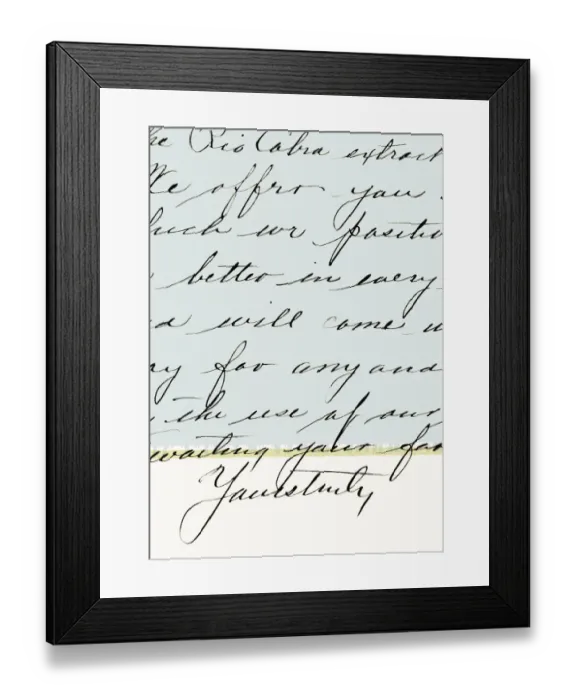 he Rio Cobra extract
We offer you
which we positiv
better in every
nd will come u
ry for any and
the use of our
waiting your fav
Yours truly